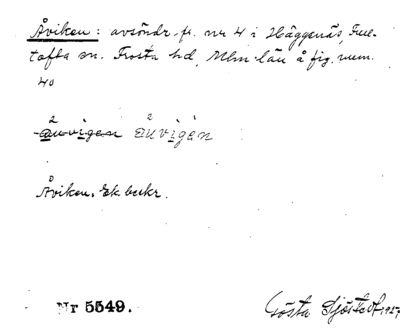 Åviken: avsöndr. fr. nr 4 i Häggenäs, Ful-
tofta sn. Frosta hd, Mlm. län å fig. num.
40
åuvigen åuvigen
Åviken. Ek. bukr.
Nr 5549.
Gösta Sjöstedt 1927